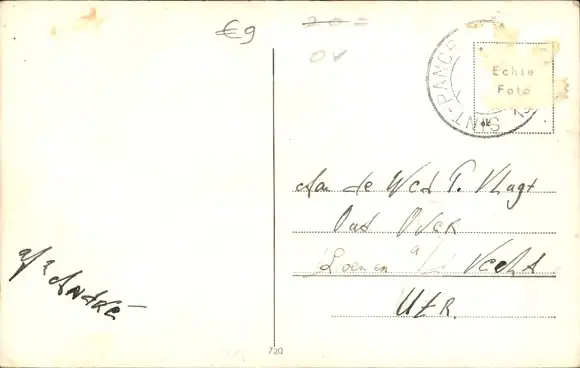 €9
202
OV
SINT-PANCR
Echte
Foto
Aan de Wed P. Vlugt
Oud Over
Loenen a/d Vecht
Utr.
André
720